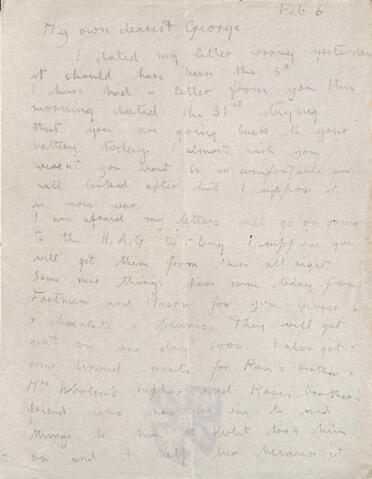 Feb 6
My own dearest George
I dated my letter wrong yesterday
it should have been the 5th
I have had a letter from you this
morning dated the 31st saying
that you are going back to your
battery today. I almost wish you
weren't you wont be so comfortable and
well looked after but I suppose it
is more war.
I am afraid my letters will go on going
to the H.A.G. too long. I suppose you
will get them from there all right.
Some nice things have come today from
Fortnum and Mason for you. Ginger
& chocolate & plums. They will get
sent on one day soon. I also got
some tinned meats for Rose's brother &
Mrs nephew and Roses brother's
friend who has no one to send
things to him so Violet took him
on and I help her because it